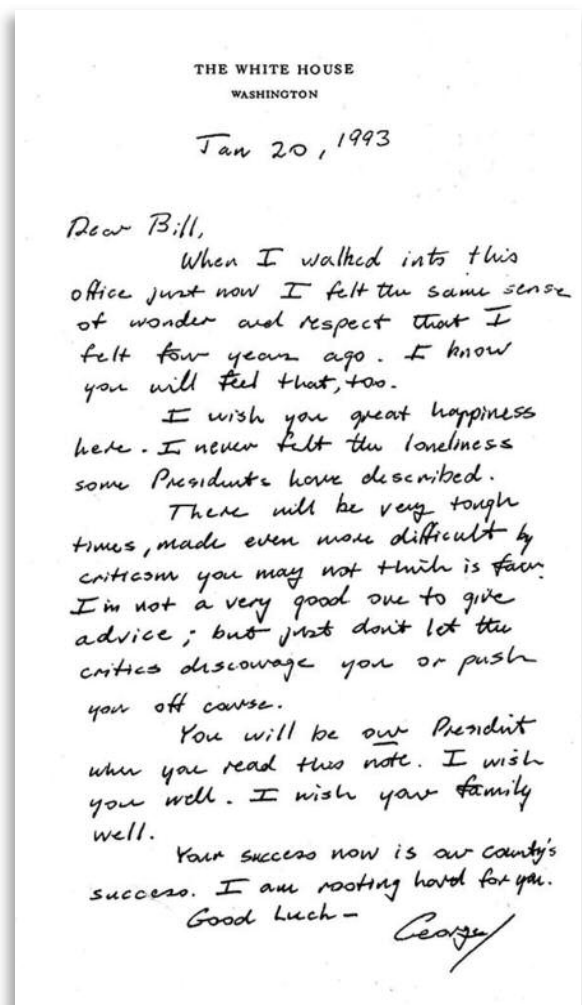 THE WHITE HOUSE
WASHINGTON
Jan 20, 1993
Dear Bill,
When I walked into this
office just now I felt the same sense
of wonder and respect that I
felt four years ago. I know
you will feel that, too.
I wish you great happiness
here. I never felt the loneliness
some Presidents have described.
There will be very tough
times, made even more difficult by
criticism you may not think is fair.
I'm not a very good one to give
advice; but just don't let the
critics discourage you or push
you off course.
You will be our President
when you read this note. I wish
you well. I wish your family
well.
Your success now is our country's
success. I am rooting hard for you.
Good Luck -
George